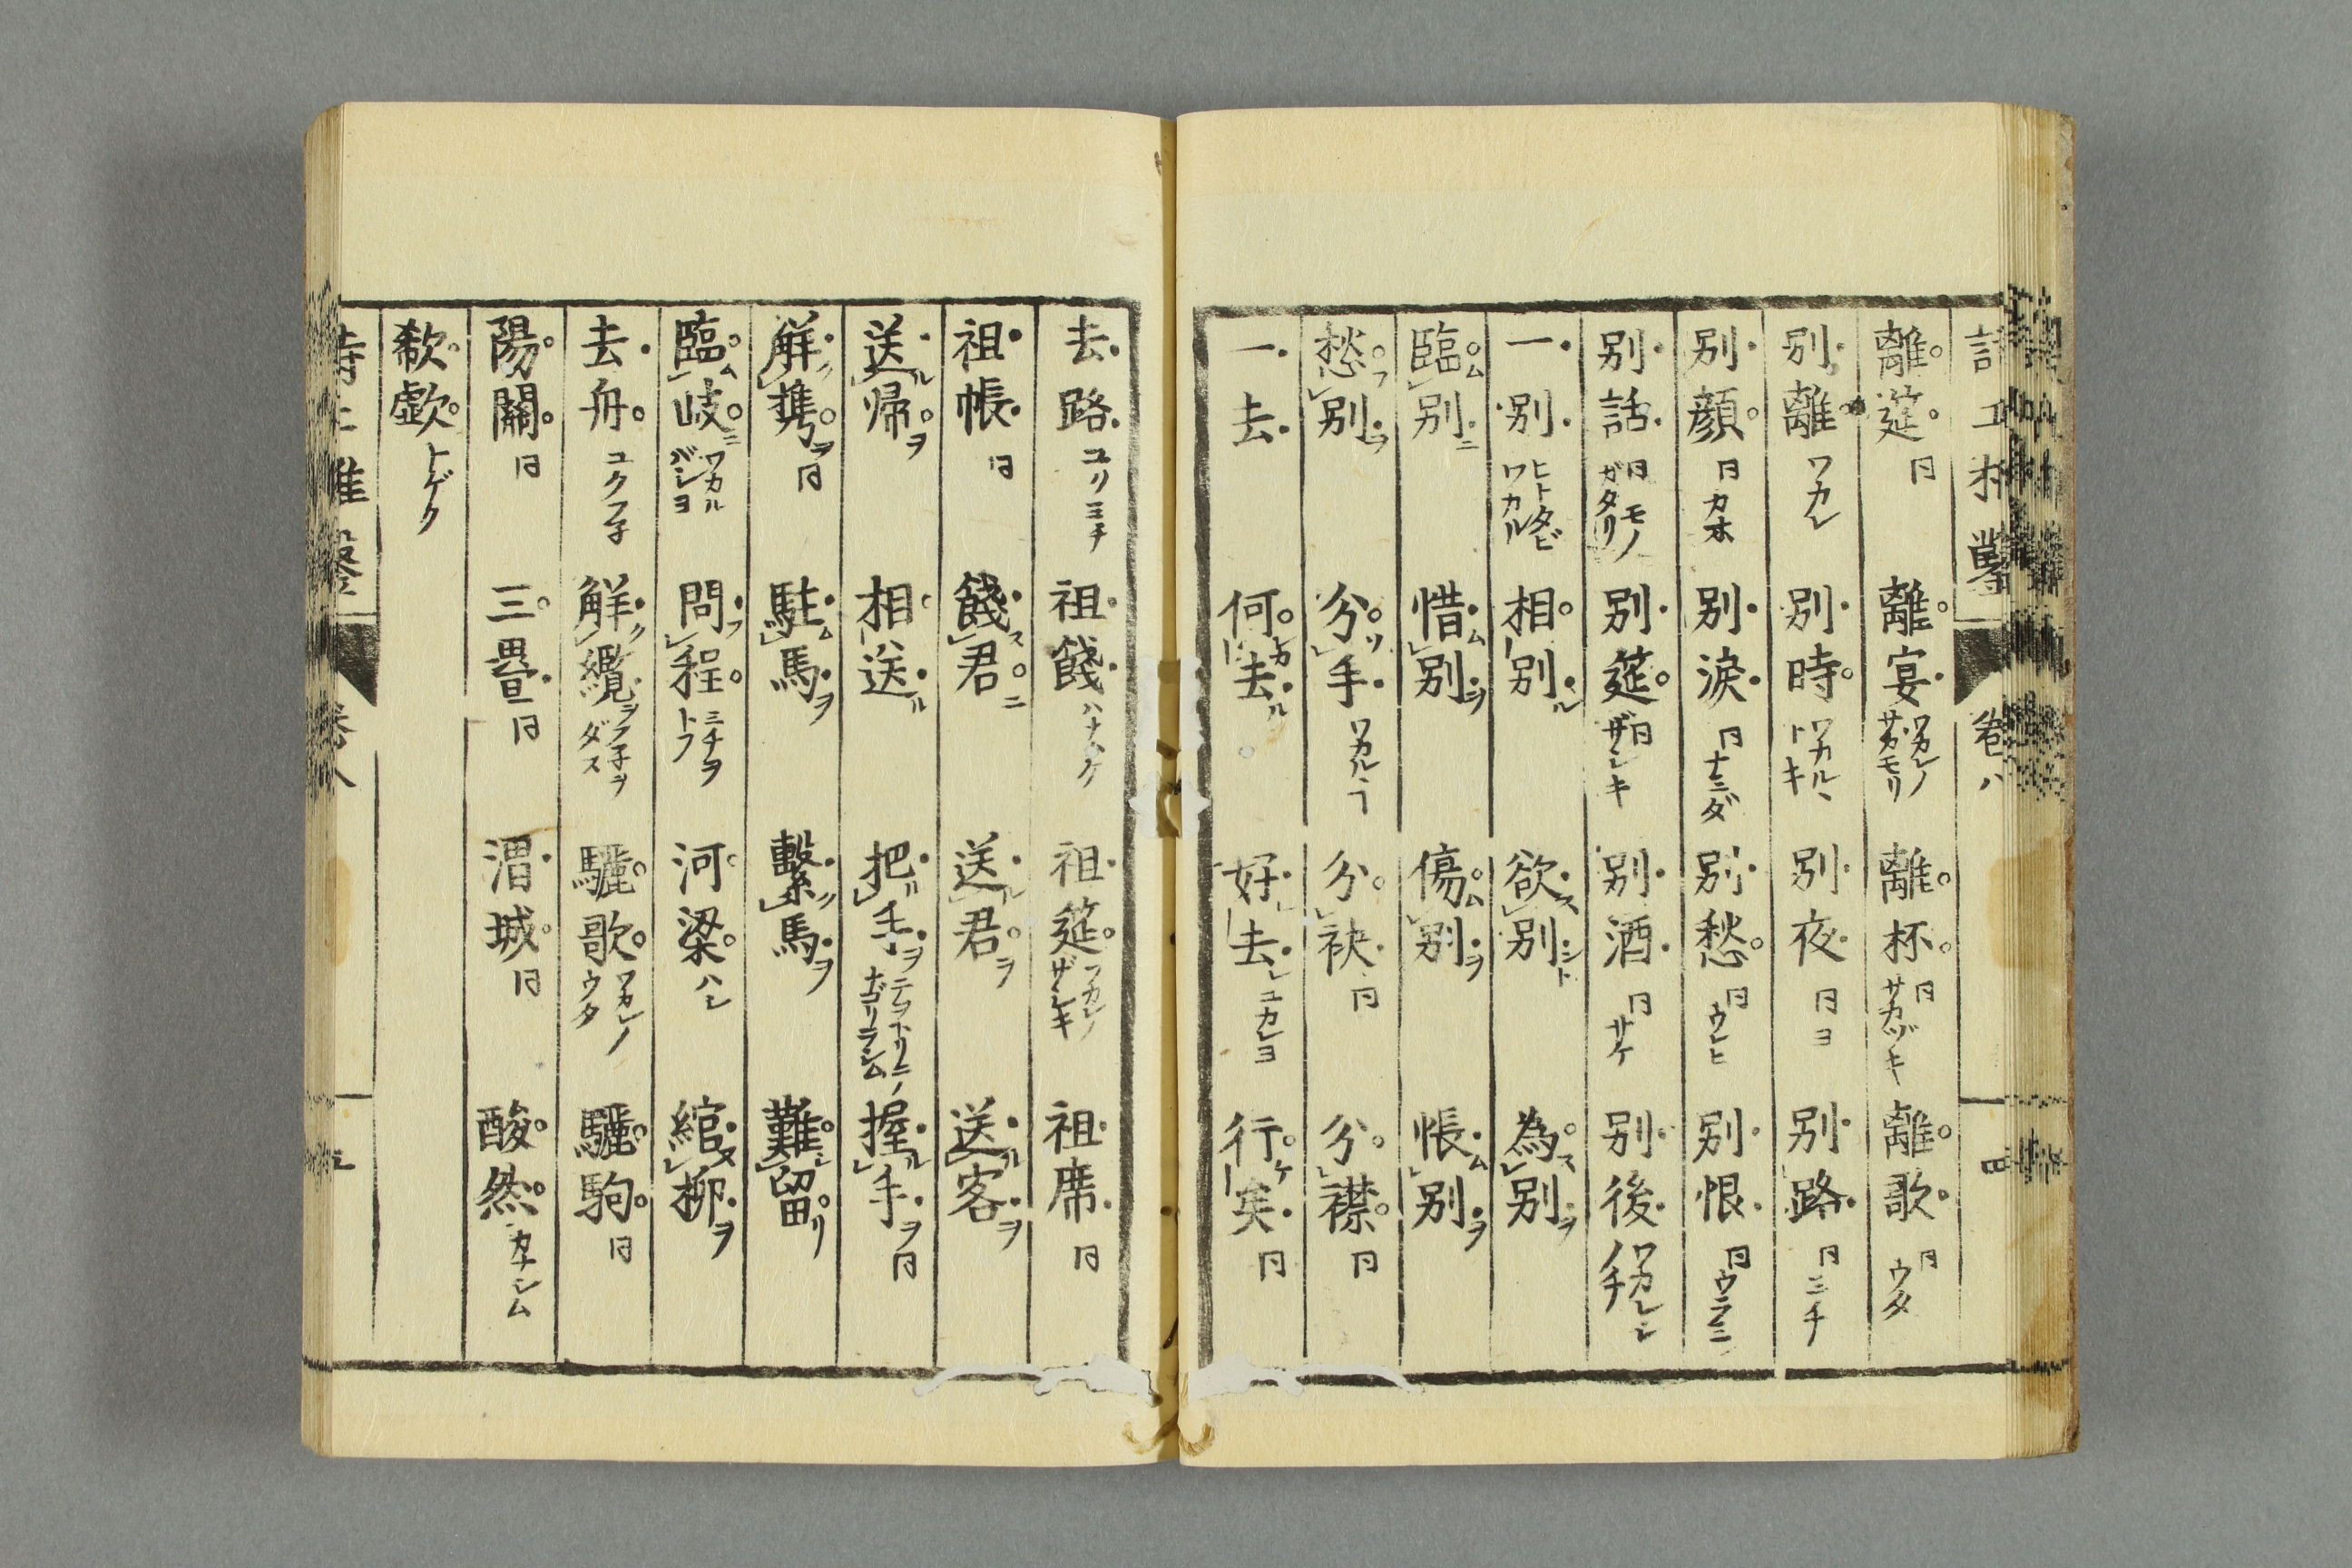 離筵 同 離宴 ワカレノサカモリ 離杯 同サカヅキ 離歌 同ウタ
別離 ワカレ 別時 ワカルヽトキ 別夜 同ヨ 別路 同ミチ
別顔 同カホ 別涙 同ナミダ 別愁 同ウレヒ 別恨 同ウラミ
別話 同モノガタリ 別筵 同ザシキ 別酒 同サケ 別後 ワカレシノチ
一別 ヒトタビワカル 相別ル 欲レス別ント 為レス別ヲ
臨レム別ニ 惜レム別ヲ 傷レム別ヲ 悵レム別ヲ
愁レフ別ヲ 分レツ手 ワカルヽ 分レ袂 同 分レ襟 同
一去 何去ル 好去レ ユカレヨ 行ケ矣 同
去路 ユクミチ 祖餞 ハナムケ 祖筵 ワカレノザシキ 祖席 同
祖帳 同 餞レス君ニ 送レル君ヲ 送レル客ヲ
送レル帰ヲ 相送ル 把レル手ヲ 握レル手ヲ 同
觧レク携ヲ 同 駐レム馬ヲ 繋レク馬ヲ 難レシ留リ
臨レム岐ニ ワカルバシヨ 問レフ程 ミチヲトフ 河梁 ハシ 綰レヌ柳ヲ
去舟 ユクフ子 觧レク纜ヲ フ子ヲダス 驪歌 ワカレノウタ 驪駒 同
陽關 同 三畳 同 渭城 同 酸然 カナシム
欷歔 ナゲク
卷八
四